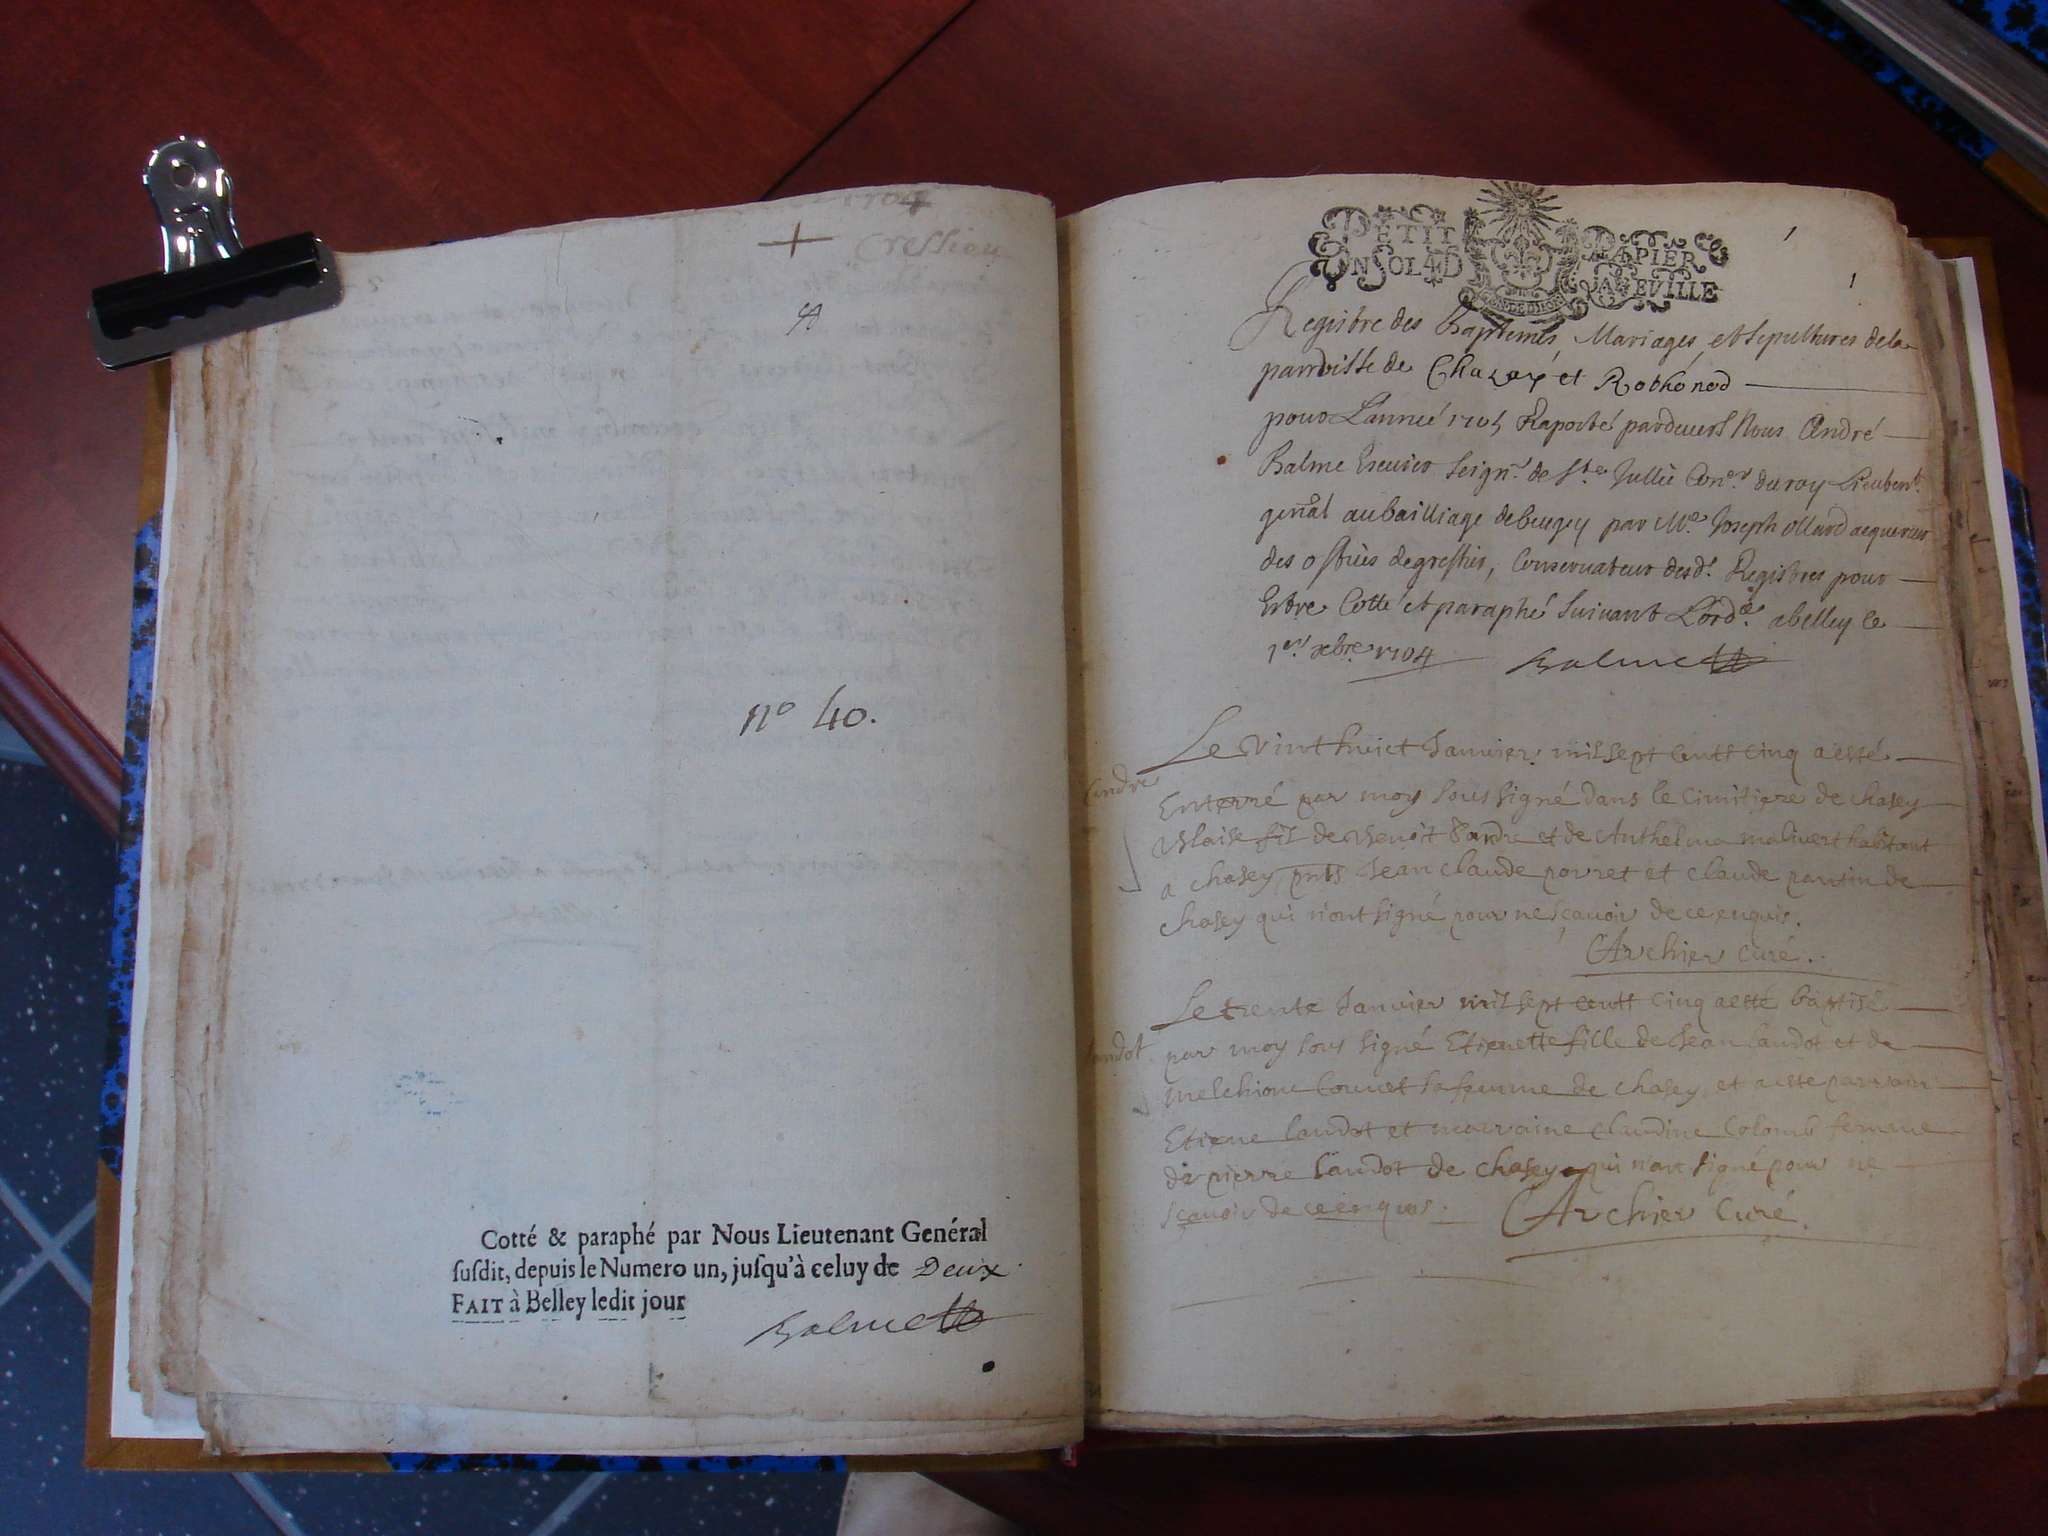 1704
Cression
nº 40.
Cotté & paraphé par Nous Lieutenant Genéral
susdit, depuis le Numero un, jusqu'à celuy de Deux
FAIT à Belley ledit jour
Balme
PETIT PAPIER
UN SOL 4 D LA FEUILLE
1
Registre des Baptemes Mariages, et sepultures dela
parroisse de Chazay et Rothonod
pour L'anneé 1705 Raporté pardevers Nous André
Balme Escuier Seignr. de Ste Jullie Coner. du roy Lieutent.
gnãl au bailliage de beugey par Me. Joseph ollard acquereur
des offices de greffier, Conservateur desd. Registres pour
Estre Cotté et paraphé suivant L'ord.ce abelley le
1er. xbre. 1704 Balme
Le vint huict Janvier mil sept centt cinq a esté
Enterré par moy sous signé dans le cimitiere de chasey
Blaise fils de Benoît et de Anthelma malivert habitant
a chasey pnts Jean claude porret et claude pantin de
chasey qui n'ont signé pour ne sçavoir de ce enquis.
Archier curé.
Le trente Janvier mil sept centt cinq a esté baptisé
par moy sous signé Etienette fille de Jean landot et de
melchione sa femme de chasey et a este parrain
Etiene landot et marraine claudine Colomb femme
de pierre landot de chasey qui n'ont signé pour ne
sçavoir de ce enquis. Archier Curé.